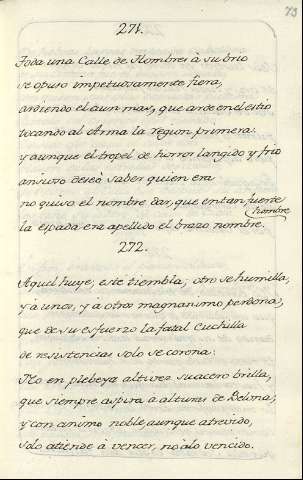 73
271.
Toda una Calle de Hombres à su brio
se opuso impetuosamente fiera,
ardiendo el aun mas, que arde en el estio
tocando al Arma la region primera:
y aunque el tropel de horror langido y frio
ansioso deseò saber quien era
no quiso el nombre dar, que en tan fuerte
hombre
la espada era apellido el brazo nombre.
272.
Aquel huye, este tiembla, otro se humilla,
y à unos, y à otros magnanimo perdona,
que de su esfuerzo la fatal Cuchilla
de resistencias solo se corona:
No en plebeya altivez su acero brilla,
que siempre aspira à alturas de Belona;
y con animo noble aunque atrevido,
solo atiende à vencer, no àlo vencido.